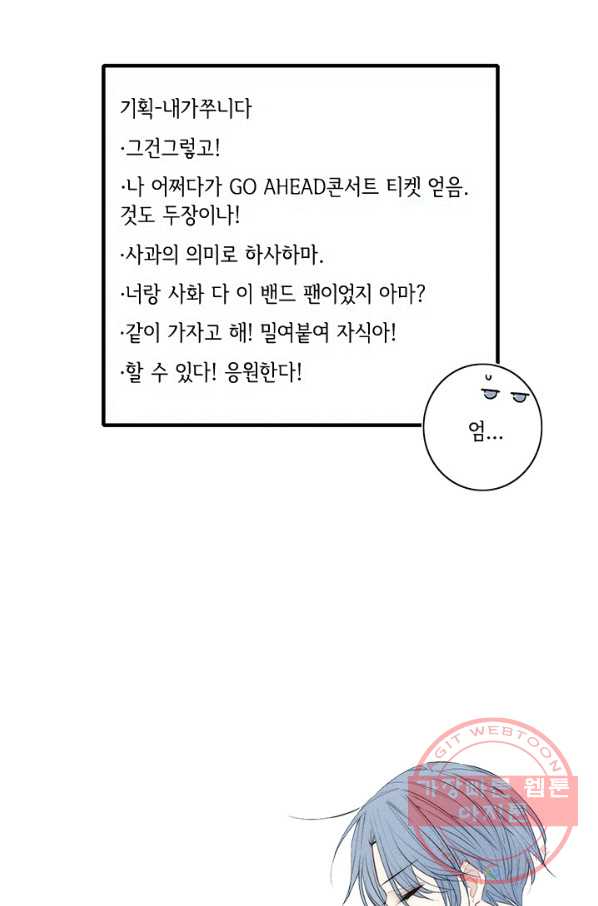 기획-내가쭈니다
·그건그렇고!
·나 어쩌다가 GO AHEAD콘서트 티켓 얻음.
것도 두장이나!
·사과의 의미로 하사하마.
·너랑 사화 다 이 밴드 팬이었지 아마?
·같이 가자고 해! 밀여붙여 자식아!
·할 수 있다! 응원한다!
엄...
GIT WEBTOON
가장빠른 웹툰
다지툰